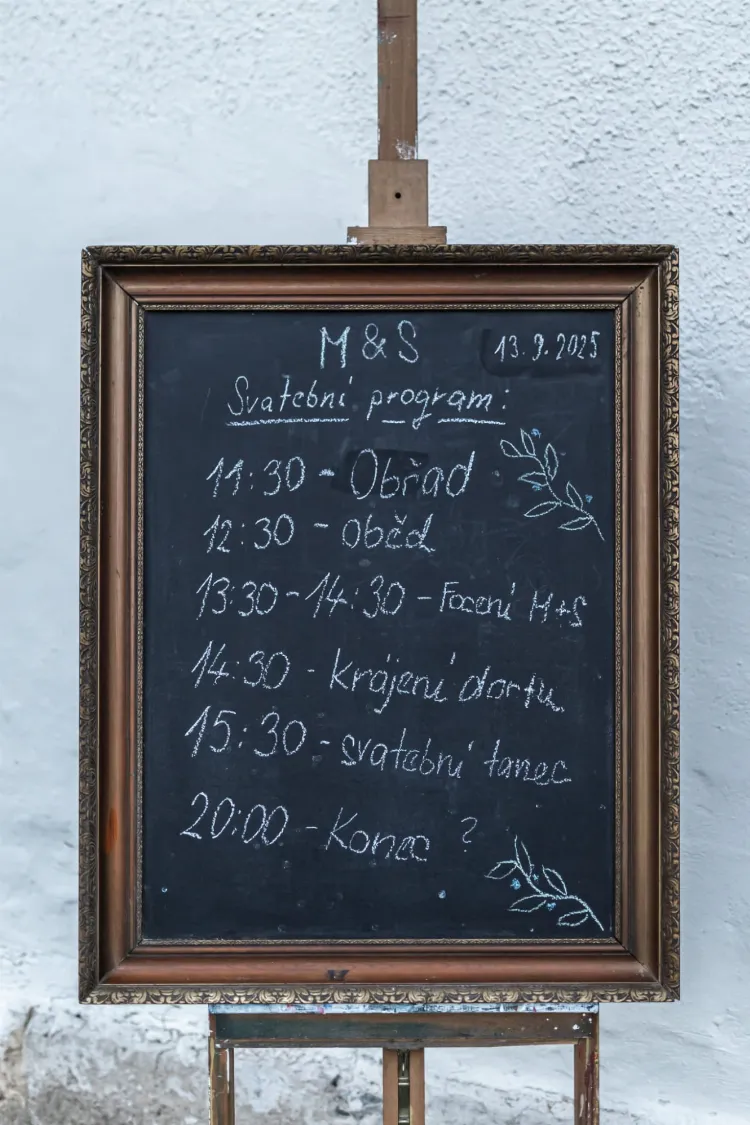 M & S
13.9.2025
Svatební program:
11:30 - Obřad
12:30 - oběd
13:30 - 14:30 - Focení M+S
14:30 - krájení dortu
15:30 - svatební tanec
20:00 - Konec ?